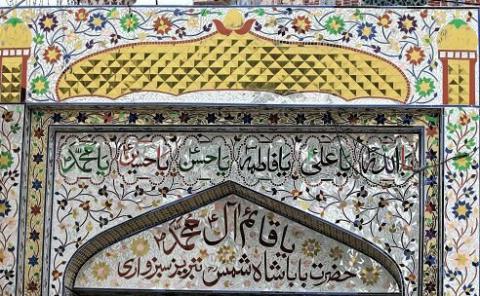 یا اللہ یا علیؑ یا فاطمہؑ یا حسنؑ یا حسینؑ یا محمدؐ
یا قائم آل محمدؐ
حضرت بابا شاہ شمس تبریز سبزواری